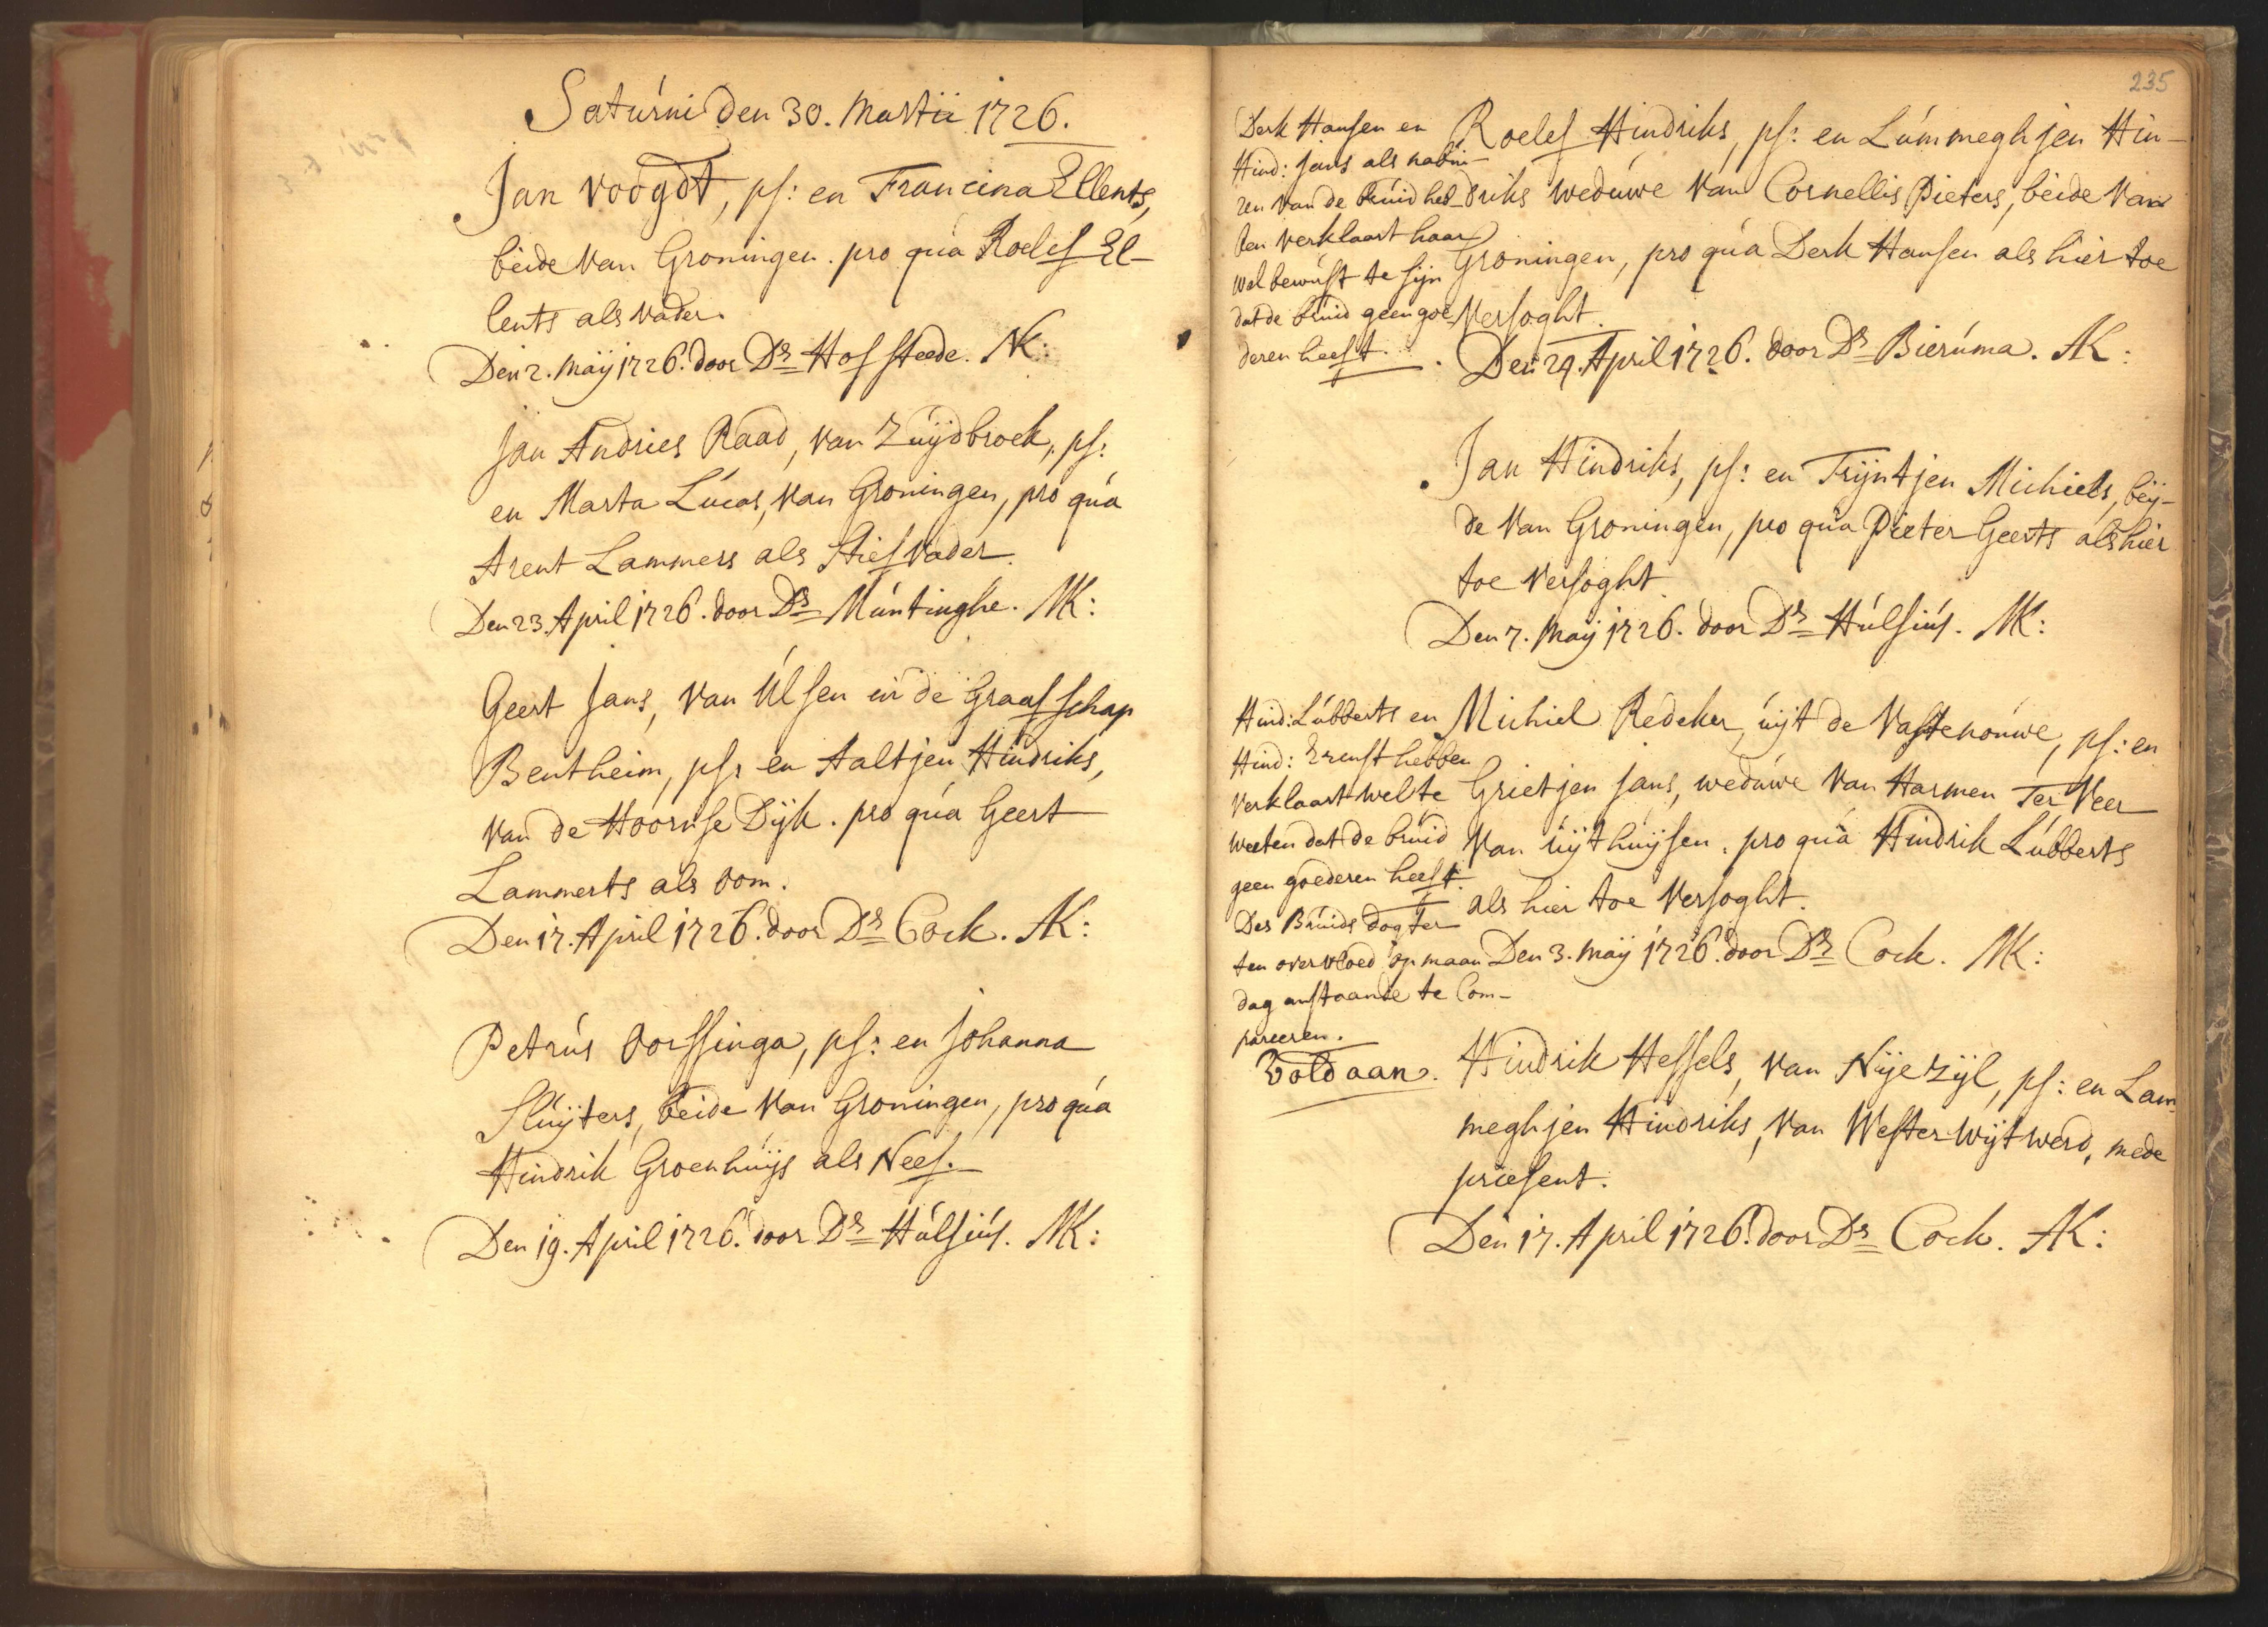 Saturni den 30. Martii 1726.
Jan Voogdt, ps: en Francina Ellents,
beide van Groningen. pro qua Roelef El-
lents als vader.
Den 2. Maÿ 1726. door Ds Hofstede. NK:
Jan Andries Raad, van Zuÿdbroek, ps:
en Marta Lucas, van Groningen, pro qua
Arent Lammers als Stiefvader.
Den 23. April 1726. door Ds Muntinghe. NK:
Geert Jans, van Ulsen in de Graafschap
Bentheim, ps: en Aaltjen Hindriks,
van de Hoornse Dÿk. pro qua Geert
Lammerts als oom.
Den 17. April 1726. door Ds Cock. AK:
Petrus Dorssinga, ps: en Johanna
Sluÿters, beide van Groningen, pro qua
Hindrik Groenhuÿs als Neef.
Den 19. April 1726. door Ds Hulsius. NK:
235
Derk Hansen en
Hind: Jans als nabu-
ren van de Bruid heb-
ben verklaart haar
wel bewust te sijn
dat de bruid geen goe
deren heeft.
Roelef Hindriks, ps: en Lummeghjen Hin-
driks weduwe van Cornellis Pieters, beide van
Groningen, pro qua Derk Hansen als hier toe
versoght.
Den 29. April 1726. door Ds Bieruma. AK:
Jan Hindriks, ps: en Trÿntjen Michiels, beÿ-
de van Groningen, pro qua Pieter Geerts als hier
toe versoght.
Den 7. Maÿ 1726. door Ds Hulsius. NK:
Hind: Lubberts en
Hind: Ernst hebben
verklaart wel te
weeten dat de bruid
geen goederen heeft.
Des Bruids dogter
ten overvloed op maan
dag anstaande te Com-
pareeren.
Voldaan.
Michiel Redeker, uÿt de Vastenouwe, ps: en
Grietjen Jans, weduwe van Harmen Ter Veer
van Uÿthuÿsen. pro qua Hindrik Lubberts
als hier toe versoght.
Den 3. Maÿ 1726. door Ds Cock. NK:
Hindrik Hessels, van Nÿezÿl, ps: en Lam
meghjen Hindriks, van Westerwÿtwerd, mede
præsent.
Den 17. April 1726. door Ds Cock. AK: